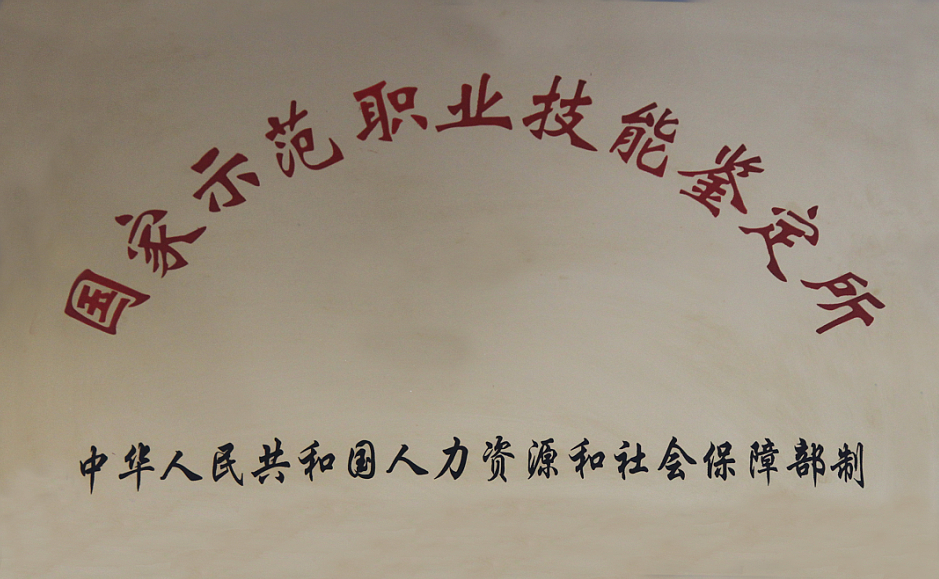 国家示范职业技能鉴定所
中华人民共和国人力资源和社会保障部制